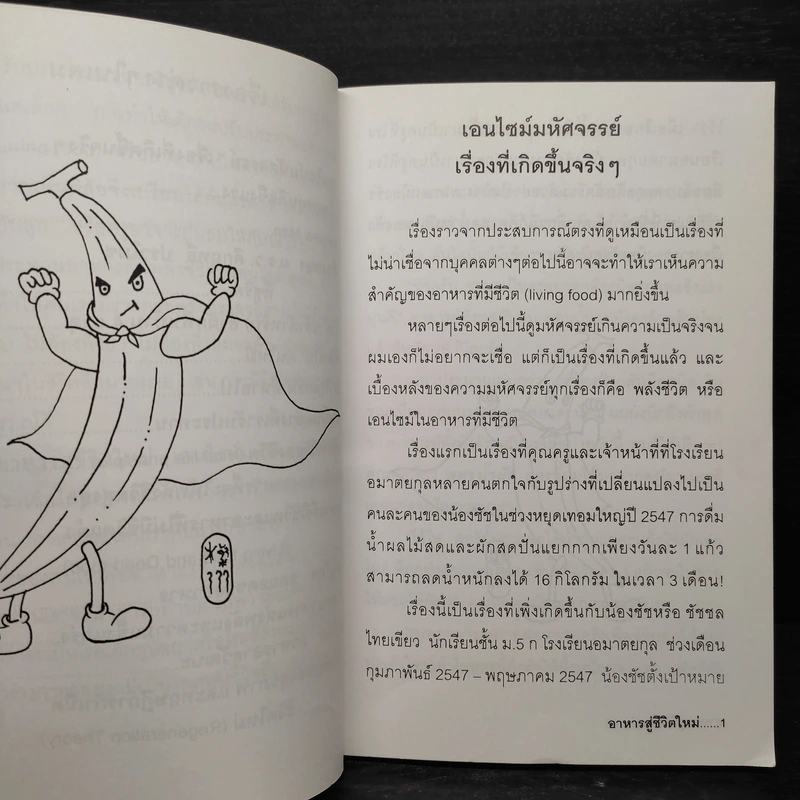 เอนไซม์มหัศจรรย์
เรื่องที่เกิดขึ้นจริงๆ
เรื่องราวจากประสบการณ์ตรงที่ดูเหมือนเป็นเรื่องที่
ไม่น่าเชื่อจากบุคคลต่างๆต่อไปนี้อาจจะทำให้เราเห็นความ
สำคัญของอาหารที่มีชีวิต (living food) มากยิ่งขึ้น
หลายๆเรื่องต่อไปนี้ดูมหัศจรรย์เกินความเป็นจริงจน
ผมเองก็ไม่อยากจะเชื่อ แต่ก็เป็นเรื่องที่เกิดขึ้นแล้ว และ
เบื้องหลังของความมหัศจรรย์ทุกเรื่องก็คือ พลังชีวิต หรือ
เอนไซม์ในอาหารที่มีชีวิต
เรื่องแรกเป็นเรื่องที่คุณครูและเจ้าหน้าที่ที่โรงเรียน
อมาตยกุลหลายคนตกใจกับรูปร่างที่เปลี่ยนแปลงไปเป็น
คนละคนของน้องชัชในช่วงหยุดเทอมใหญ่ปี 2547 การดื่ม
น้ำผลไม้สดและผักสดปั่นแยกกากเพียงวันละ 1 แก้ว
สามารถลดน้ำหนักลงได้ 16 กิโลกรัม ในเวลา 3 เดือน!
เรื่องนี้เป็นเรื่องที่เพิ่งเกิดขึ้นกับน้องชัชหรือ ชัชชล
ไทยเขียว นักเรียนชั้น ม.5 ก โรงเรียนอมาตยกุล ช่วงเดือน
กุมภาพันธ์ 2547 – พฤษภาคม 2547 น้องชัชตั้งเป้าหมาย
อาหารสู่ชีวิตใหม่......1